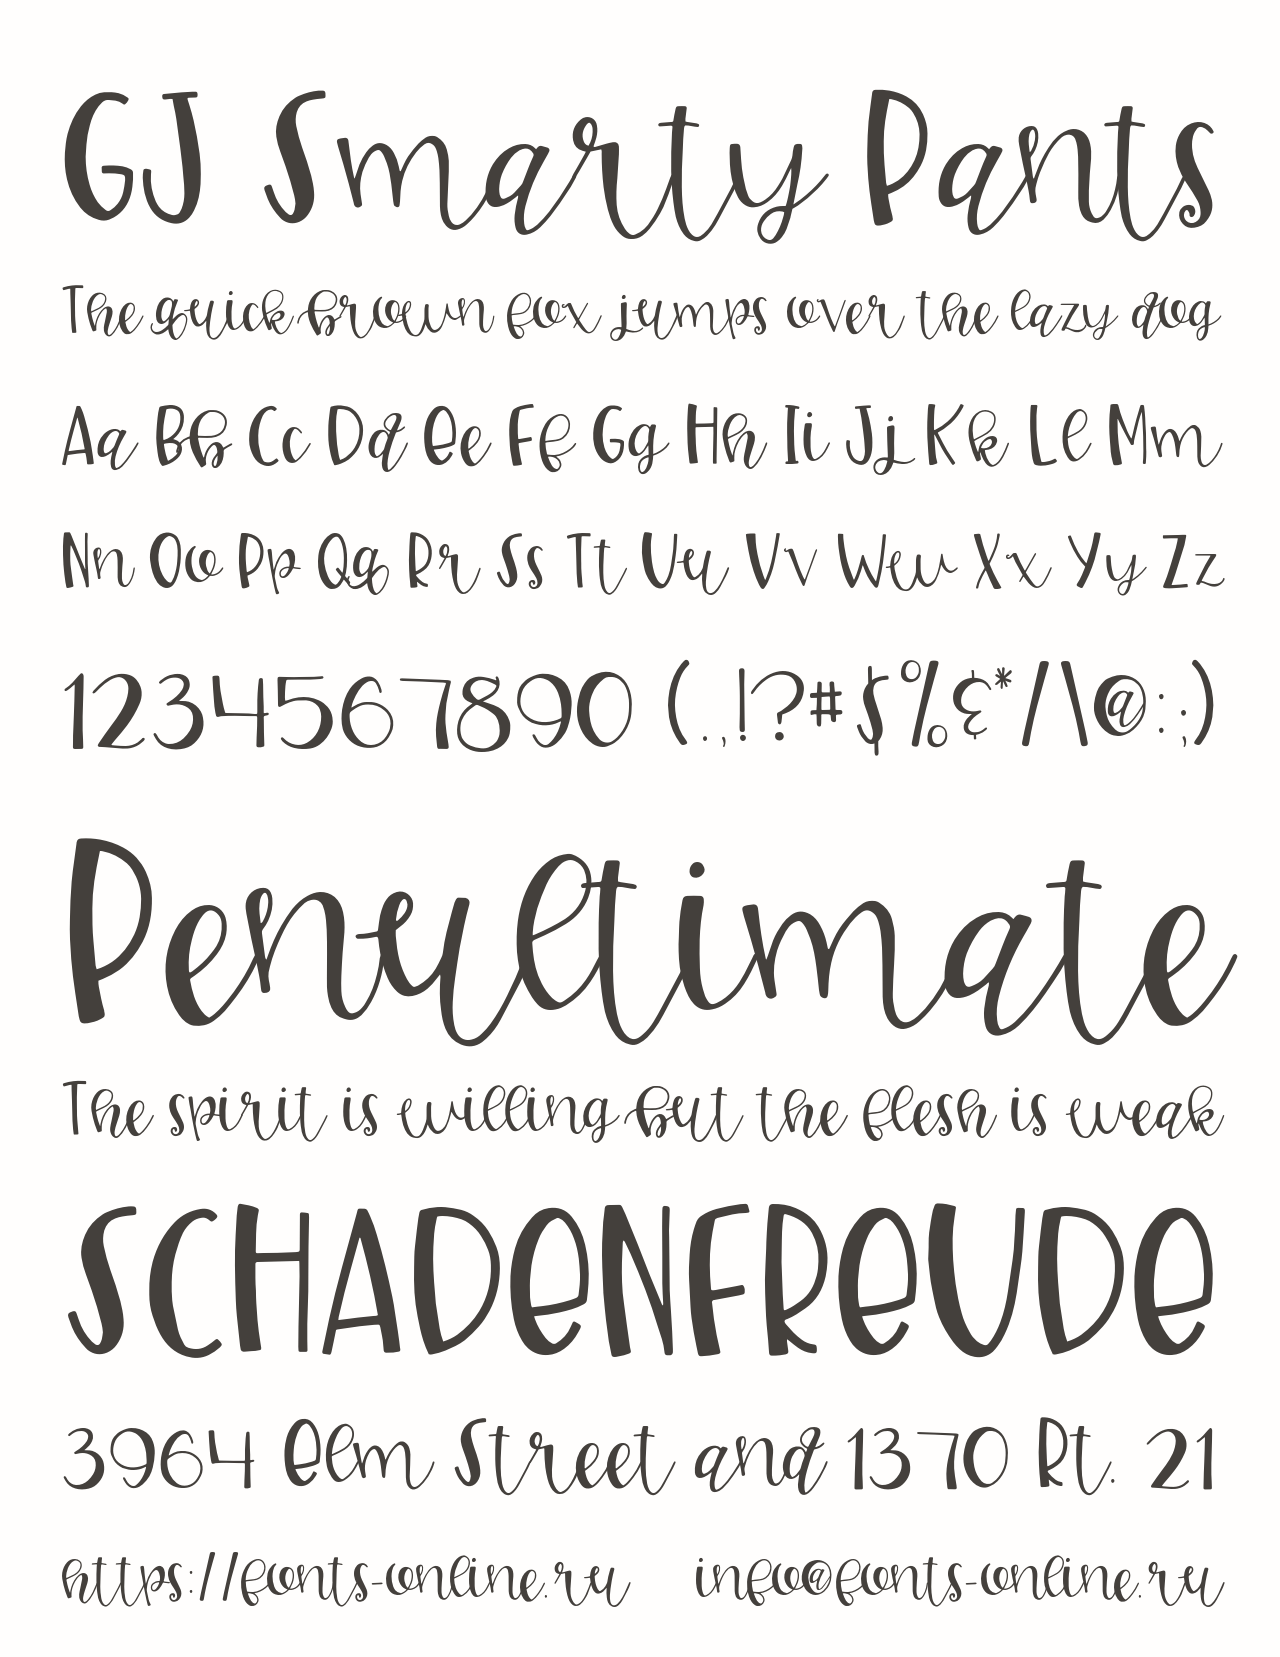 GJ Smarty Pants
The quick brown fox jumps over the lazy dog
Aa Bb Cc Dd Ee Ff Gg Hh Ii Jj Kk Ll Mm
Nn Oo Pp Qq Rr Ss Tt Uu Vv Ww Xx Yy Zz
1234567890 (.,!?#$%¢*/\@:;)
Penultimate
The spirit is willing but the flesh is weak
SCHADENFREUDE
3964 Elm Street and 1370 Rt. 21
https://fonts-online.ru info@fonts-online.ru